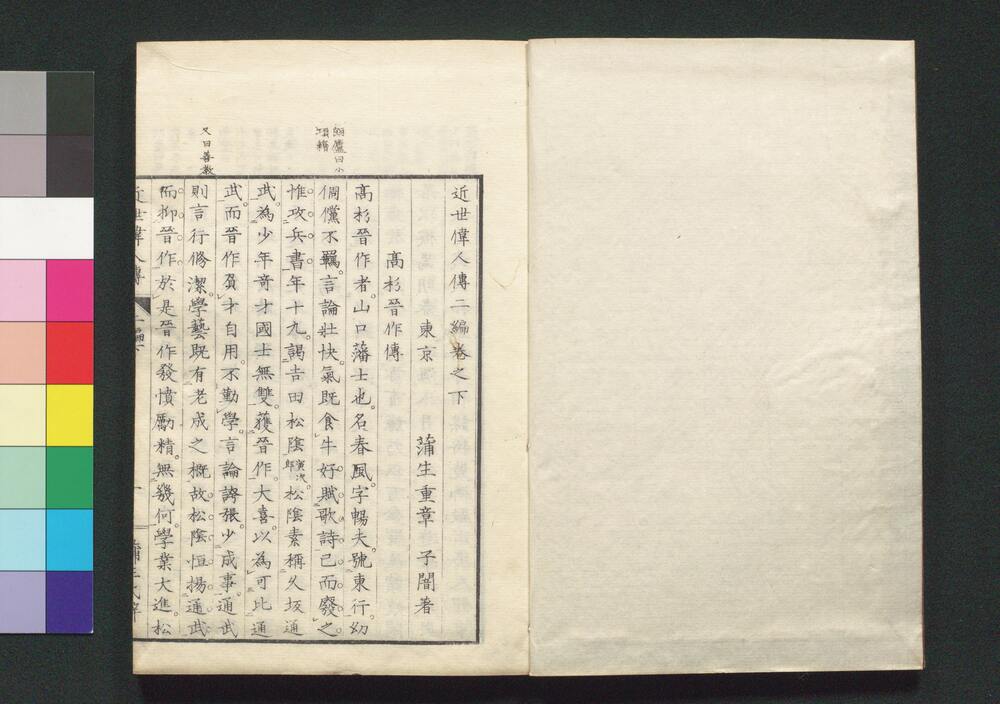 近世偉人傳二編卷之下
東京　蒲生重章　子闇著
高杉晉作傳
高杉晉作者。山口藩士也。名春風。字暢夫。號東行。幼
倜儻不羈。言論壯快。氣既食牛。好賦歌詩。已而廢之。
惟攻兵書。年十九。謁吉田松陰寅次郎松陰素稱久坂通
武。為少年奇才國士無雙。獲晉作。大喜。以為可比通
武。而晉作負才自用。不勤學。言論誇張。少成事。通武
則言行脩潔。學藝既有老成之概。故松陰恒揚通武
而抑晉作。於是晉作發憤勵精。無幾何學業大進。松
近世偉人傳
二編下
一
又曰善教
曰小
項籍